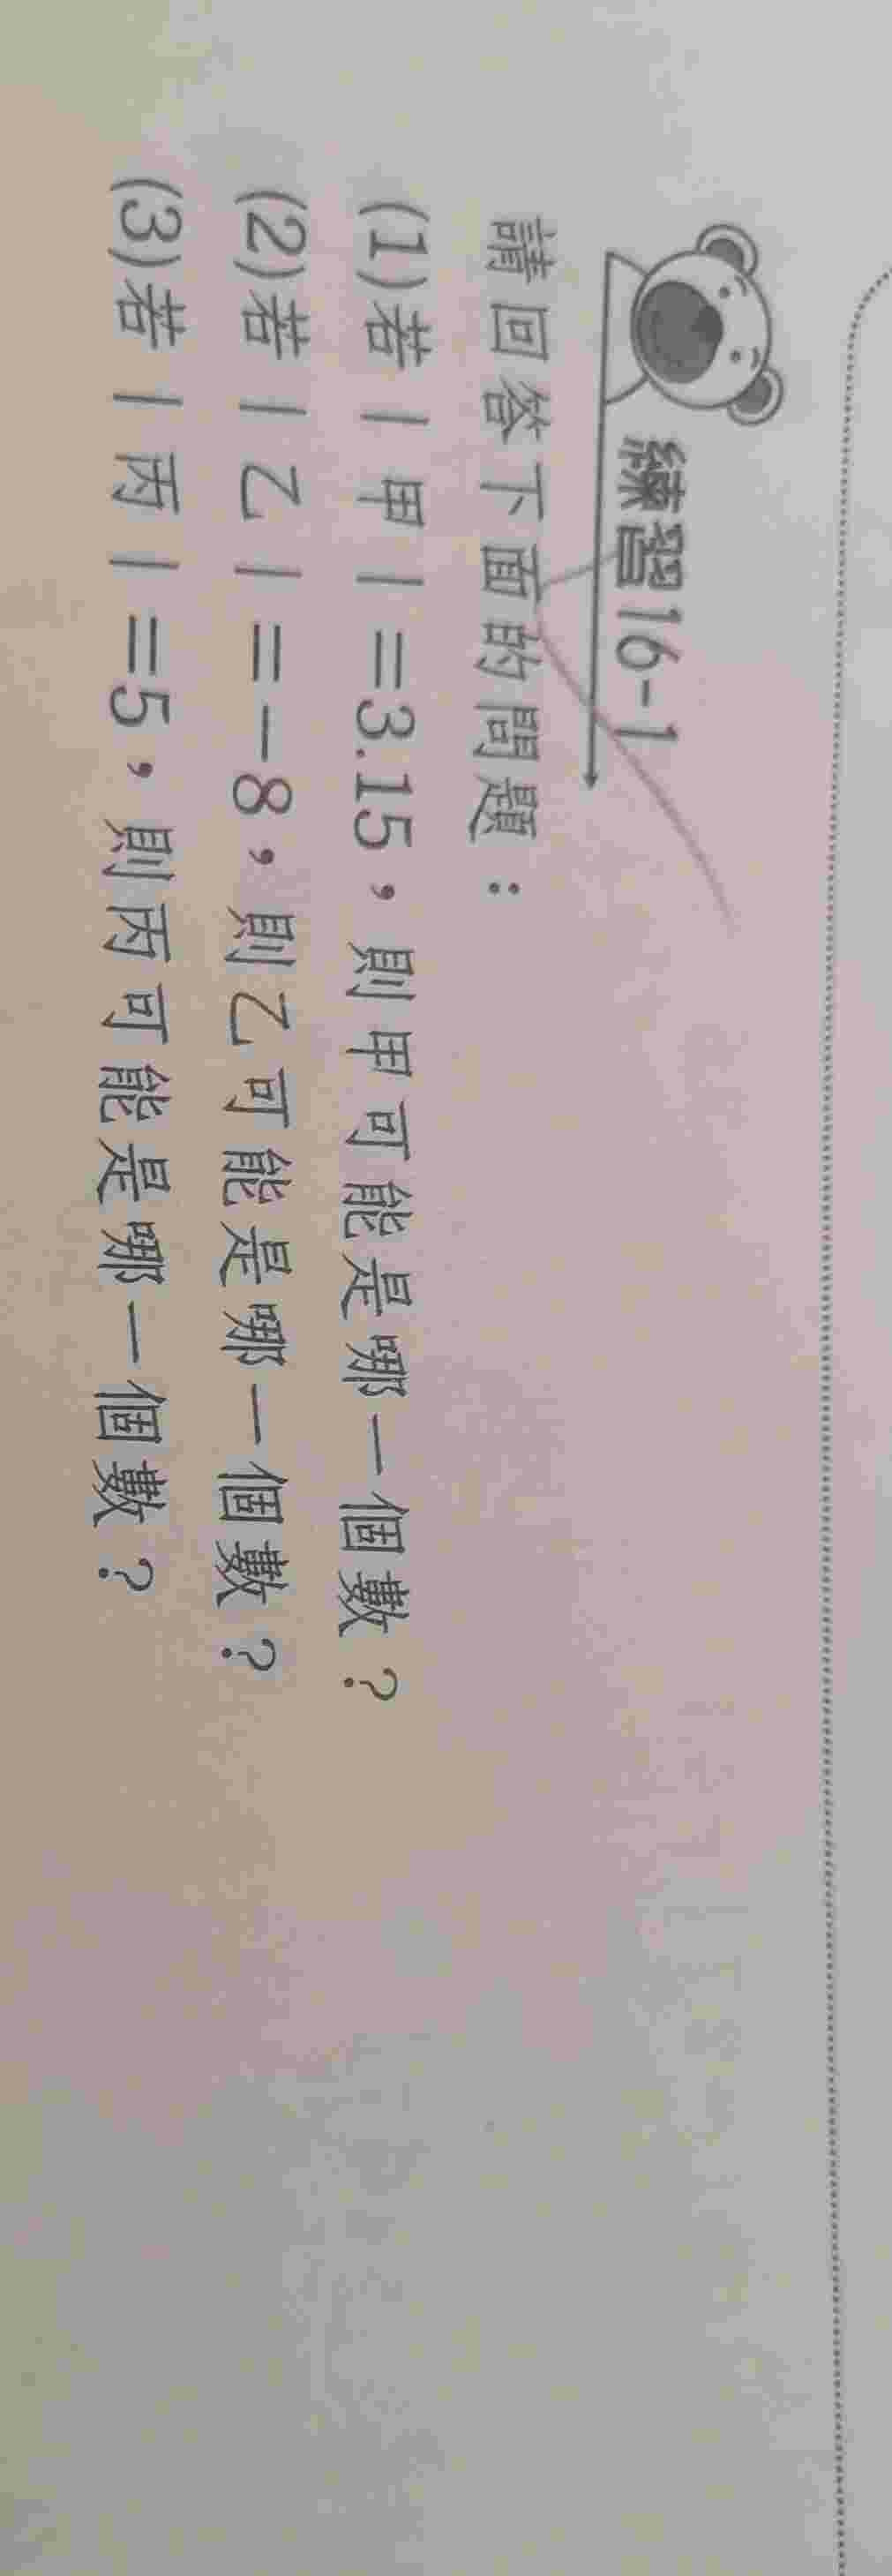 練習16-1
請回答下面的問題：
(1)若｜甲｜=3.15，則甲可能是哪一個數？
(2)若｜乙｜=－8，則乙可能是哪一個數？
(3)若｜丙｜=5，則丙可能是哪一個數？